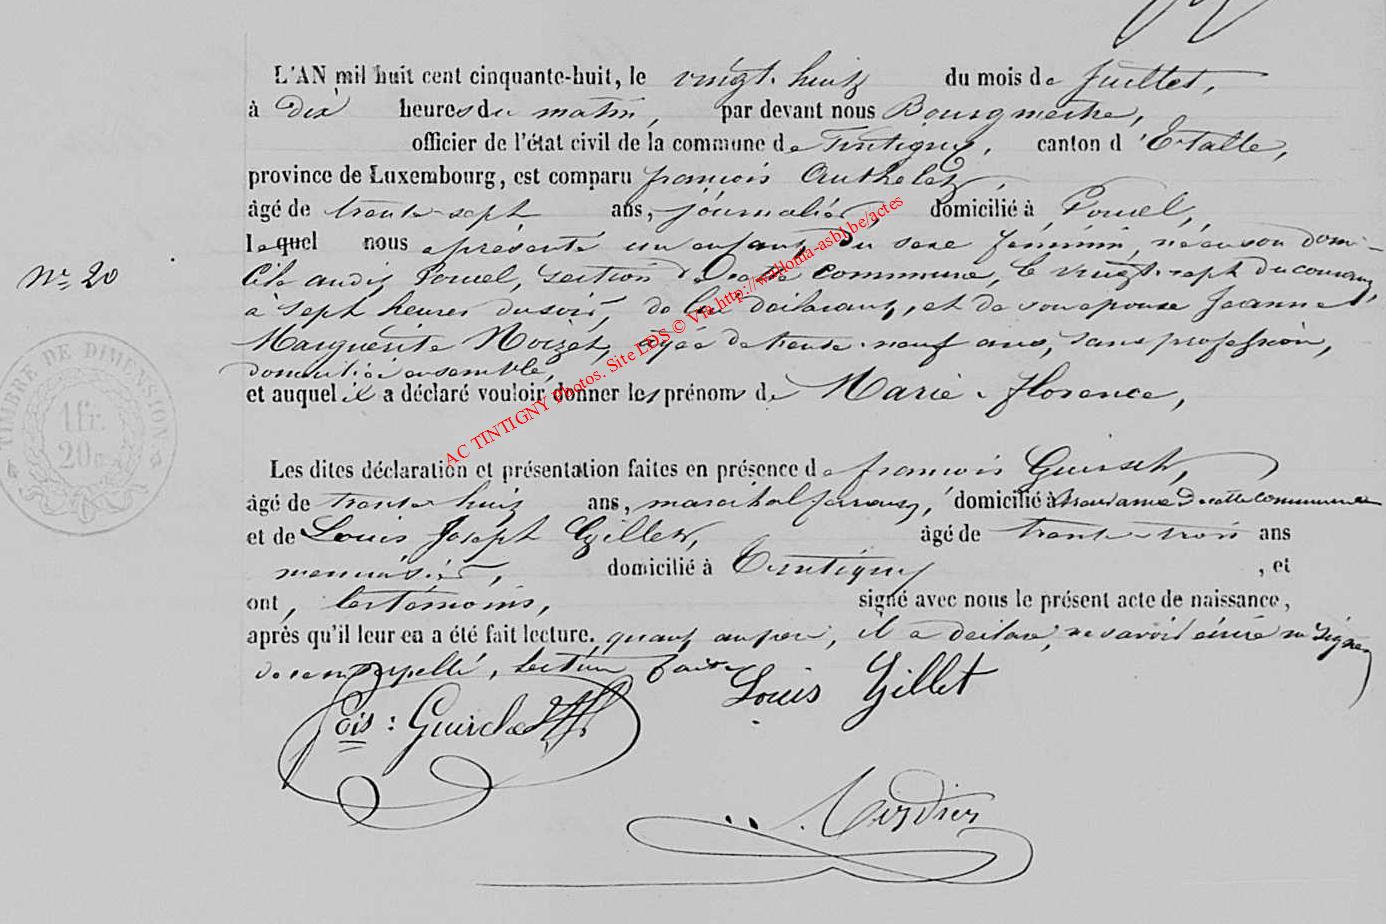 L'AN mil huit cent cinquante-huit, le vingt-huit du mois de Juillet,
à dix heures du matin, par devant nous Bourgmestre,
officier de l'état civil de la commune de Tintigny, canton d'Etalle,
province de Luxembourg, est comparu françois Authelet,
âgé de trente-sept ans, journalier, domicilié à Poncel,
lequel nous a présenté un enfant du sexe féminin, né en son domi-
cile audit Poncel, section de cette commune, le vingt-sept du courant,
à sept heures du soir, de lui déclarant, et de son épouse Jeanne
Marguerite Noizet, âgée de trente-neuf ans, sans profession,
domiciliés ensemble,
et auquel il a déclaré vouloir donner les prénoms de Marie-florence,
N° 20
TIMBRE DE DIMENSION
1 fr.
20 c
Les dites déclaration et présentation faites en présence de françois Guirsch,
âgé de trente-huit ans, maréchal ferrant, domicilié à de cette commune
et de Louis Joseph Gillet, âgé de trente-trois ans
menuisier, domicilié à Tintigny, et
ont, les témoins, signé avec nous le présent acte de naissance,
après qu'il leur en a été fait lecture, quant au père, il a déclaré ne savoir écrire ni signer
de ce interpellé, lecture faite
Louis Gillet
fois: Guirch
AC TINTIGNY Photos. Site LDS © Via http://wallonia-asbl.be/actes